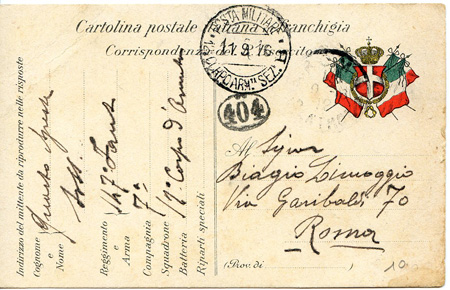 Cartolina postale italiana in franchigia
Corrispondenza del R. Esercito
POSTA MILITARE
11.9.16
12° CORPO ARM. SEZ. B
404
Al Signor
Biagio
Via Garibaldi 70
Roma
(Prov. di
Indirizzo del mittente da riprodurre nelle risposte
Cognome
e
Nome
Reggimento
e
Arma
147° Fant
Compagnia
7ª
Squadrone
Batteria
12° Corpo d'Armata
Riparti speciali